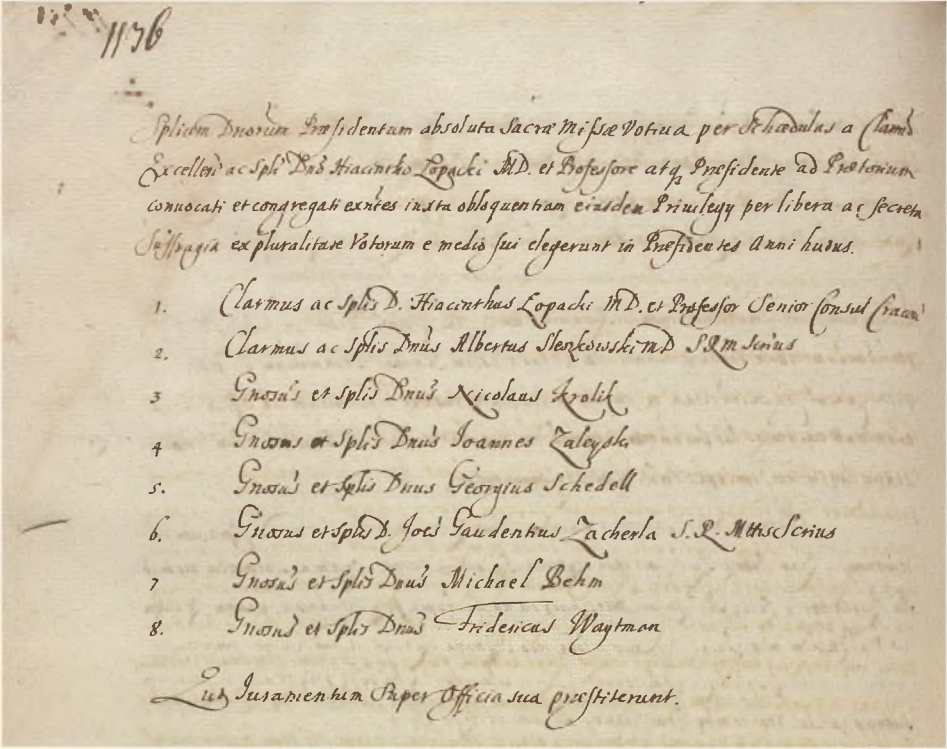 1136
Splium Dnorum Præsidentum absoluta Sacræ Missæ Votiva per Schædulas a Clarmo
Excellen ac Spli Dno Hiacintho Łopacki MD. et Professore atq Præsidente ad Prætorium
convocati et congregati exntes iuxta obloquentiam eiusdem Privilegy per libera ac secreta
Suffragia ex pluralitate Votorum e medio sui elegerunt in Præsidentes Anni huius.
1. Clarmus ac Splis D. Hiacinthus Łopacki MD. et Professor Senior Consul Cracov
2. Clarmus ac Splis Dnus Albertus Sleszkowski MD SRM Scrius
3 Gnosus et Splis Dnus Nicolaus Krolik
4 Gnosus et Splis Dnus Joannes Zaleyski
5. Gnosus et Splis Dnus Georgius Schedell
6. Gnosus et Splis D. Joes Gaudentius Zacherla S. R. Mttis Scrius
7 Gnosus et Splis Dnus Michael Behm
8. Gnosus et Splis Dnus Fridericus Waytman
Juramentum Super Officia sua præstiterunt.